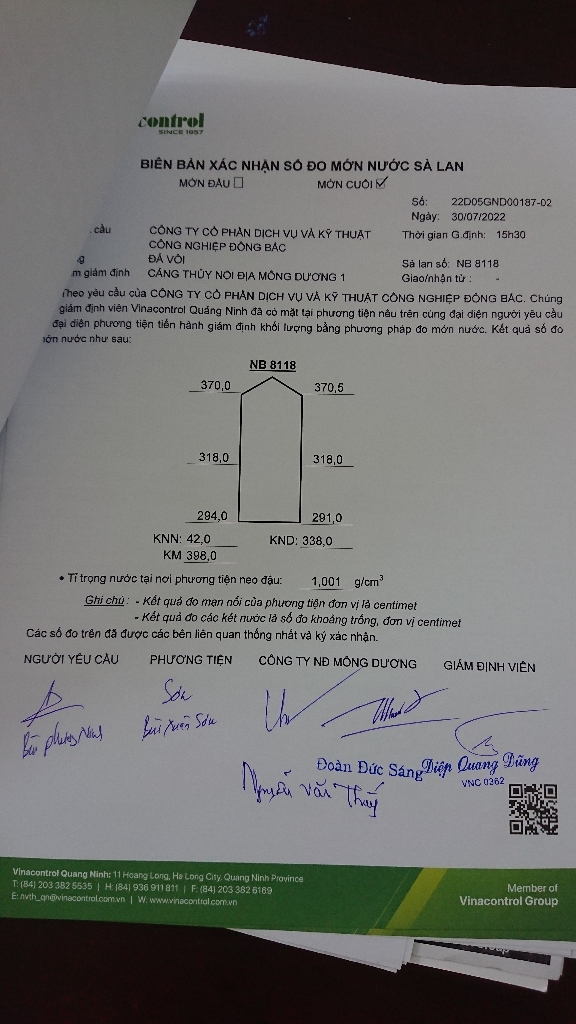 control
SINCE 1957
BIÊN BẢN XÁC NHẬN SỐ ĐO MỚN NƯỚC SÀ LAN
MỚN ĐẦU ☐ MỚN CUỐI ☑
Số: 22D05GND00187-02
Ngày: 30/07/2022
cầu CÔNG TY CỔ PHẦN DỊCH VỤ VÀ KỸ THUẬT Thời gian G.định: 15h30
CÔNG NGHIỆP ĐÔNG BẮC
g ĐÁ VÔI Sà lan số: NB 8118
m giám định CẢNG THỦY NỘI ĐỊA MÔNG DƯƠNG 1 Giao/nhận từ : -
Theo yêu cầu của CÔNG TY CỔ PHẦN DỊCH VỤ VÀ KỸ THUẬT CÔNG NGHIỆP ĐÔNG BẮC. Chúng
giám định viên Vinacontrol Quảng Ninh đã có mặt tại phương tiện nêu trên cùng đại diện người yêu cầu
đại diện phương tiện tiến hành giám định khối lượng bằng phương pháp đo mớn nước. Kết quả số đo
ớn nước như sau:
NB 8118
370,0 370,5
318,0 318,0
294,0 291,0
KNN: 42,0 KND: 338,0
KM 398,0
• Tỉ trọng nước tại nơi phương tiện neo đậu: 1,001 g/cm³
Ghi chú: - Kết quả đo mạn nổi của phương tiện đơn vị là centimet
- Kết quả đo các két nước là số đo khoảng trống, đơn vị centimet
Các số đo trên đã được các bên liên quan thống nhất và ký xác nhận.
NGƯỜI YÊU CẦU PHƯƠNG TIỆN CÔNG TY NĐ MÔNG DƯƠNG GIÁM ĐỊNH VIÊN
Sơn
Bùi phương Ninh Bùi Xuân Sơn
Đoàn Đức Sáng Diệp Quang Dũng
VNC 0362
Nguyễn Văn Thủy
Vinacontrol Quang Ninh: 11 Hoang Long, Ha Long City, Quang Ninh Province
T: (84) 203 382 5535 | H: (84) 936 911 811 | F: (84) 203 382 6169
E: nvth_qn@vinacontrol.com.vn | W: www.vinacontrol.com.vn
Member of
Vinacontrol Group